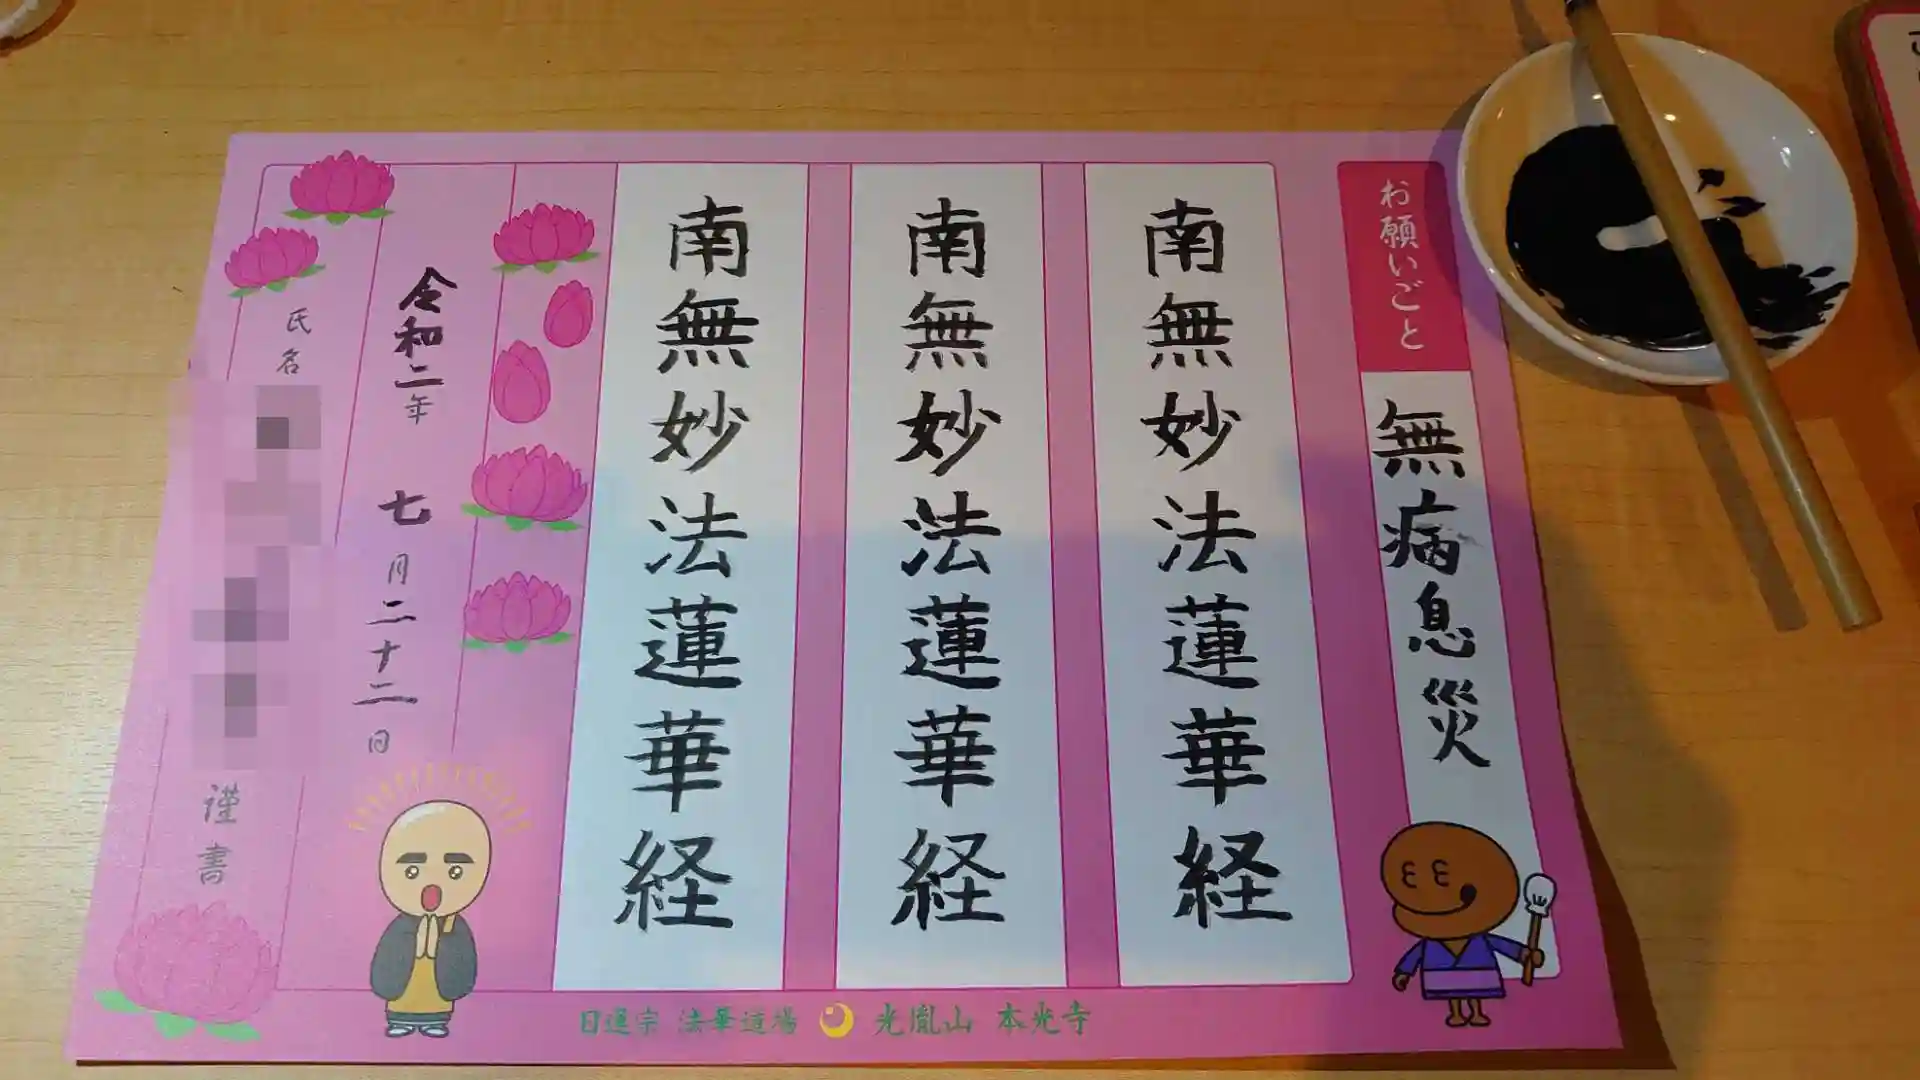 お願いごと
無病息災
南無妙法蓮華経
南無妙法蓮華経
南無妙法蓮華経
令和二年 七月二十二日
氏名
謹書
日蓮宗 法華道場 光胤山 本光寺